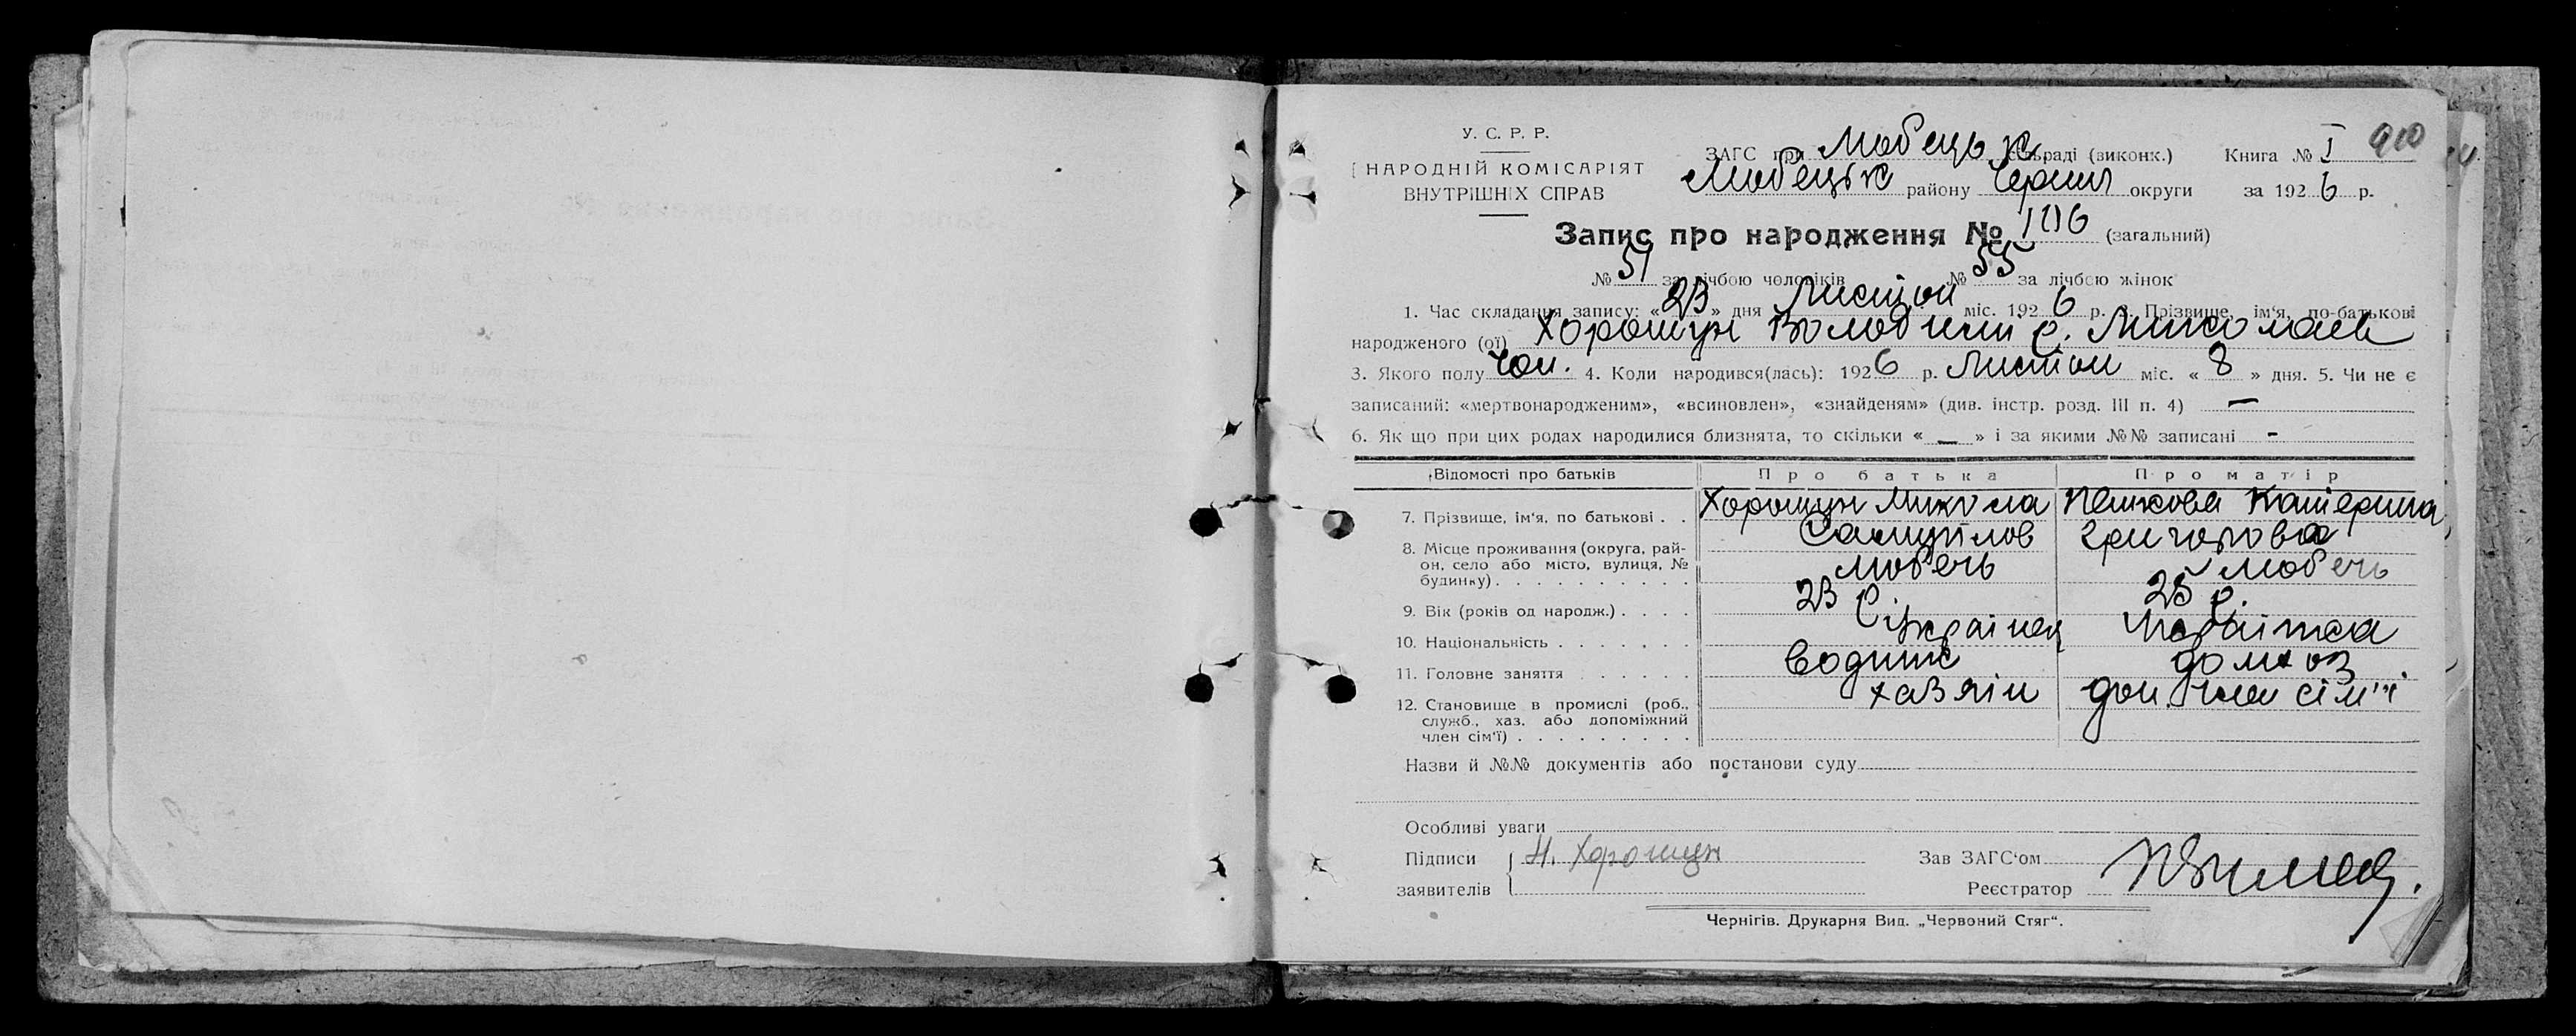 У. С. Р. Р.
НАРОДНІЙ КОМІСАРІЯТ
ВНУТРІШНІХ СПРАВ
ЗАГС при Любецьк сільраді (виконк.) Книга № I 910
Любецьк району Черниг округи за 1926 р.
Запис про народження № 106 (загальний)
№ 51 за лічбою чоловіків № 55 за лічбою жінок
1. Час складання запису: «23» дня Листоп міс. 1926 р. 2. Прізвище, ім'я, по-батькові
народженого (ої) Хорошун Володимир. Миколаев
3. Якого полу Чол. 4. Коли народився(лась): 1926 р. Листоп міс. «8» дня. 5. Чи не є
записаний: «мертвонародженим», «всиновлен», «знайденям» (див. інстр. розд. III п. 4) —
6. Як що при цих родах народилися близнята, то скільки «—» і за якими №№ записані -
Відомості про батьків Про батька Про матір
7. Прізвище, ім'я, по батькові . . Хорошун Микола Самуйлов Катерина Григоровна
8. Місце проживання (округа, рай-
он, село або місто, вулиця, №
будинку) . . . . . . . . . . Любечь Любечь
9. Вік (років од народж.) . . . . 23 р. 25 р.
10. Національність . . . . . . . Українец Українка
11. Головне заняття . . . . . . Водник домхоз
12. Становище в промислі (роб.,
служб., хаз. або допоміжний
член сім'ї) . . . . . . . . . хазяін доп. член сім'ї
Назви й №№ документів або постанови суду
Особливі уваги
Підписи Н. Хорошун Зав ЗАГС'ом
заявителів Реєстратор
Чернігів. Друкарня Вид. „Червоний Стяг“.